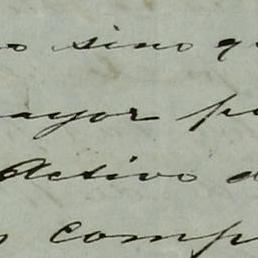 o sino q
ayor p
Activo d
comp